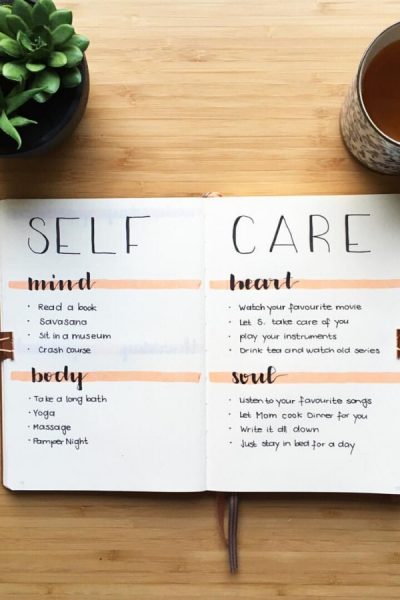 SELF CARE
mind
• Read a book
• Savasana
• Sit in a museum
• Crash course
body
• Take a long bath
• Yoga
• Massage
• Pamper Night
heart
• Watch your favourite movie
• Let S. take care of you
• play your instruments
• Drink tea and watch old series
soul
• Listen to your favourite songs
• Let Mom cook Dinner for you
• Write it all down
• Just stay in bed for a day